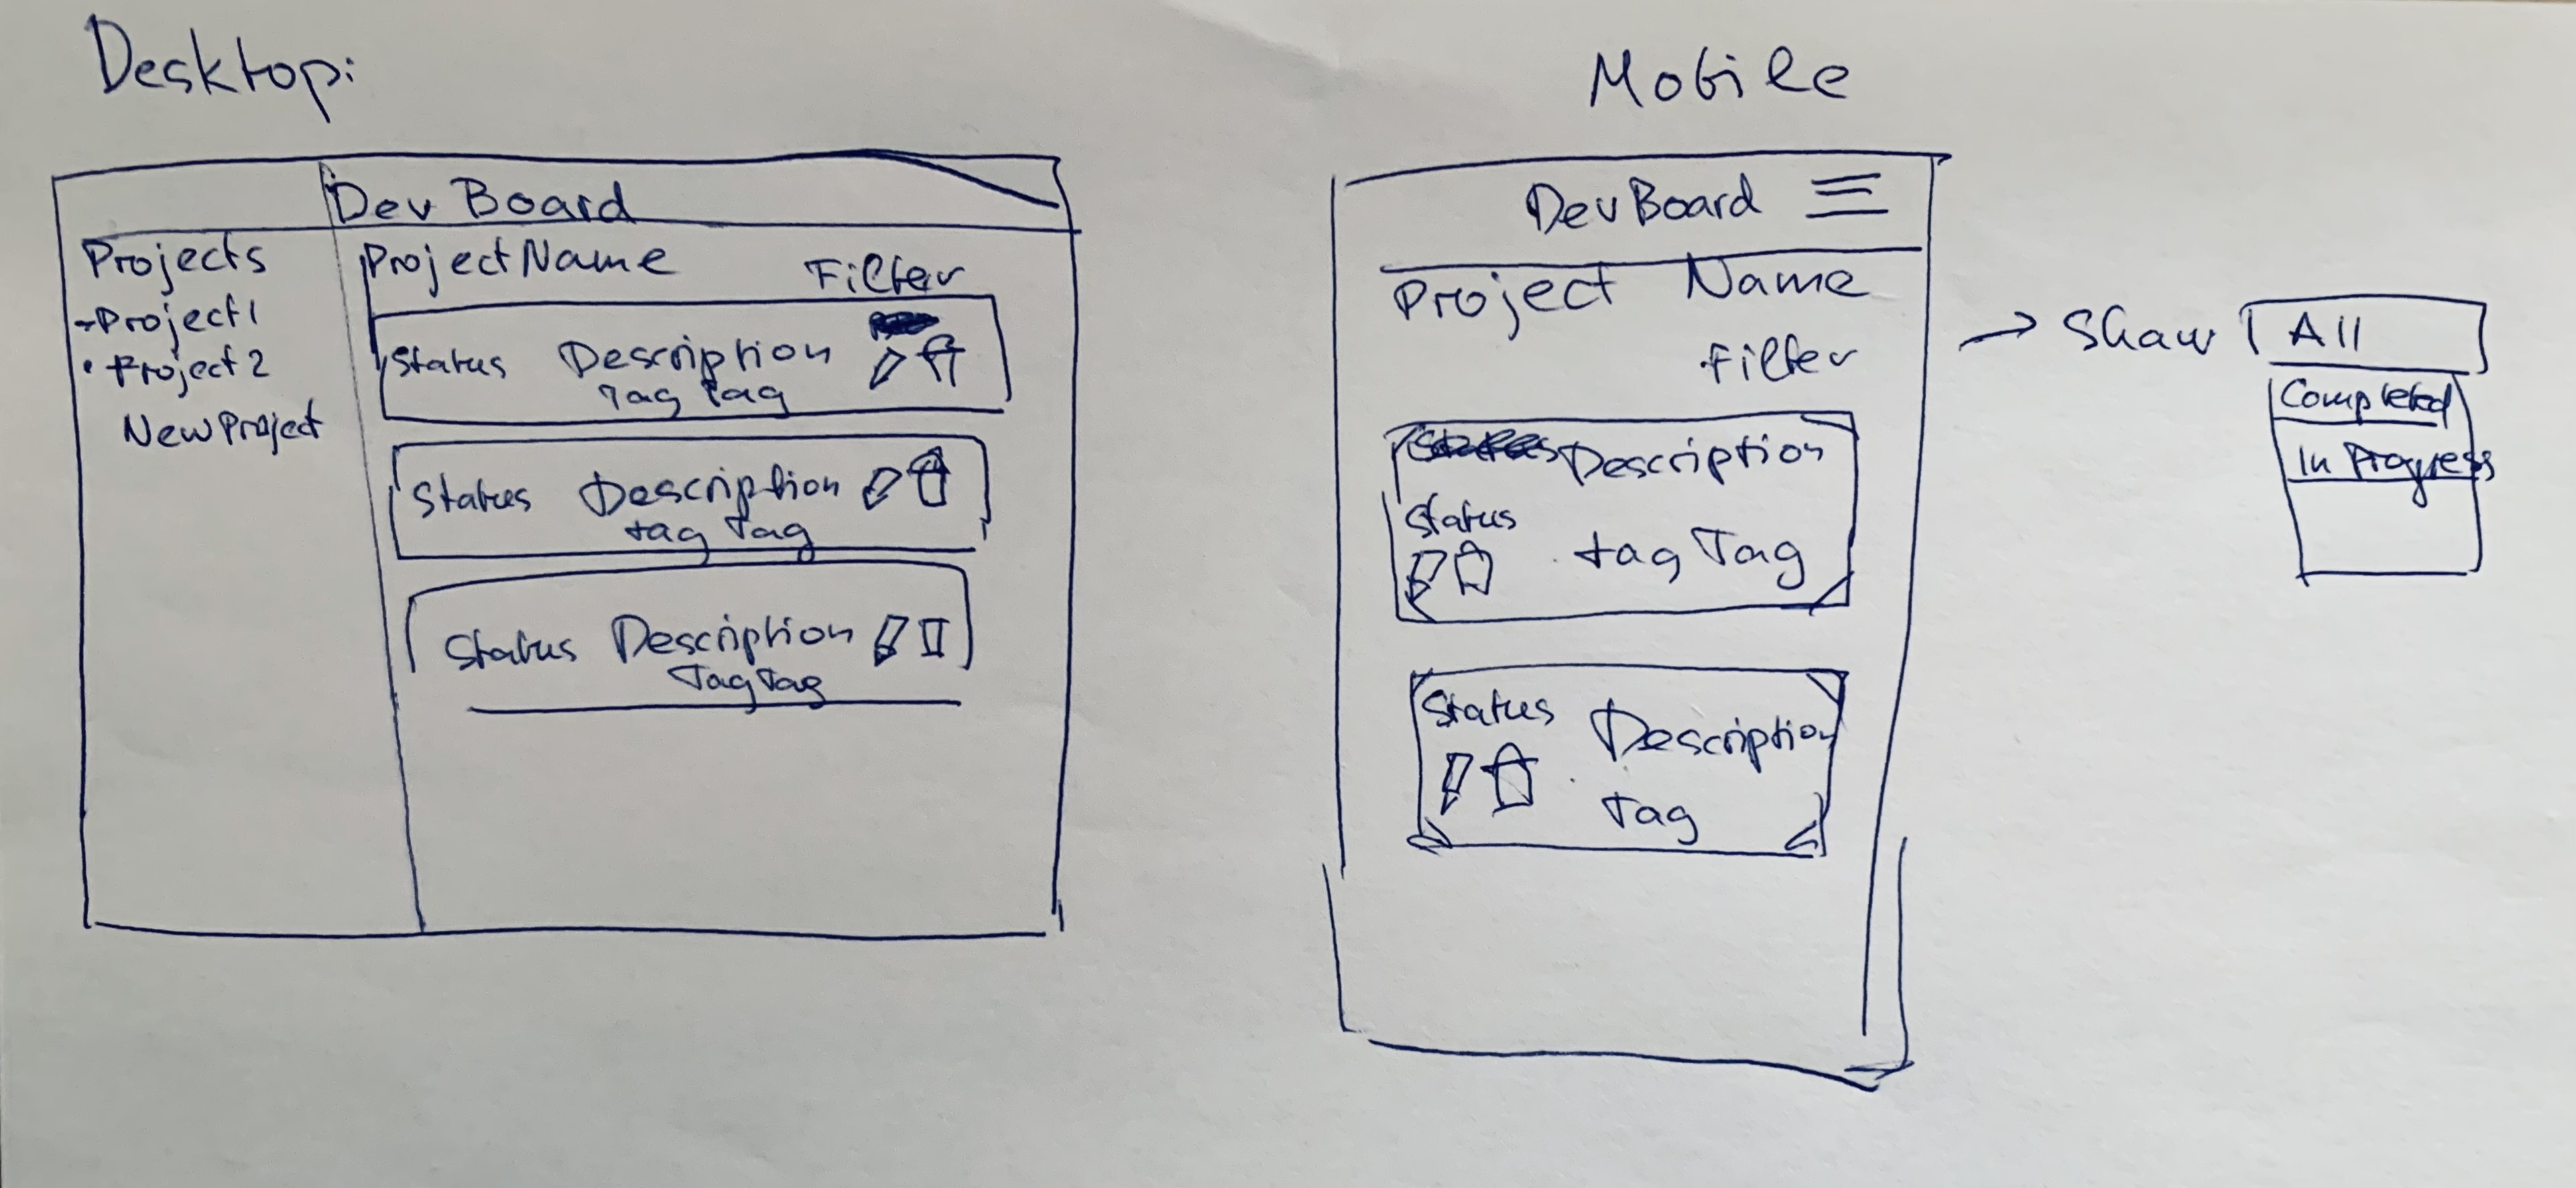 Desktop:
Dev Board
Projects
- Project 1
• Project 2
New Project
Project Name
Filter
Status Description
Tag Tag
Status Description
tag Tag
Status Description
Tag Tag
Mobile
Dev Board
Project Name
Filter
Description
Status
tag Tag
Status Description
Tag
→ Show
All
Completed
In Progress